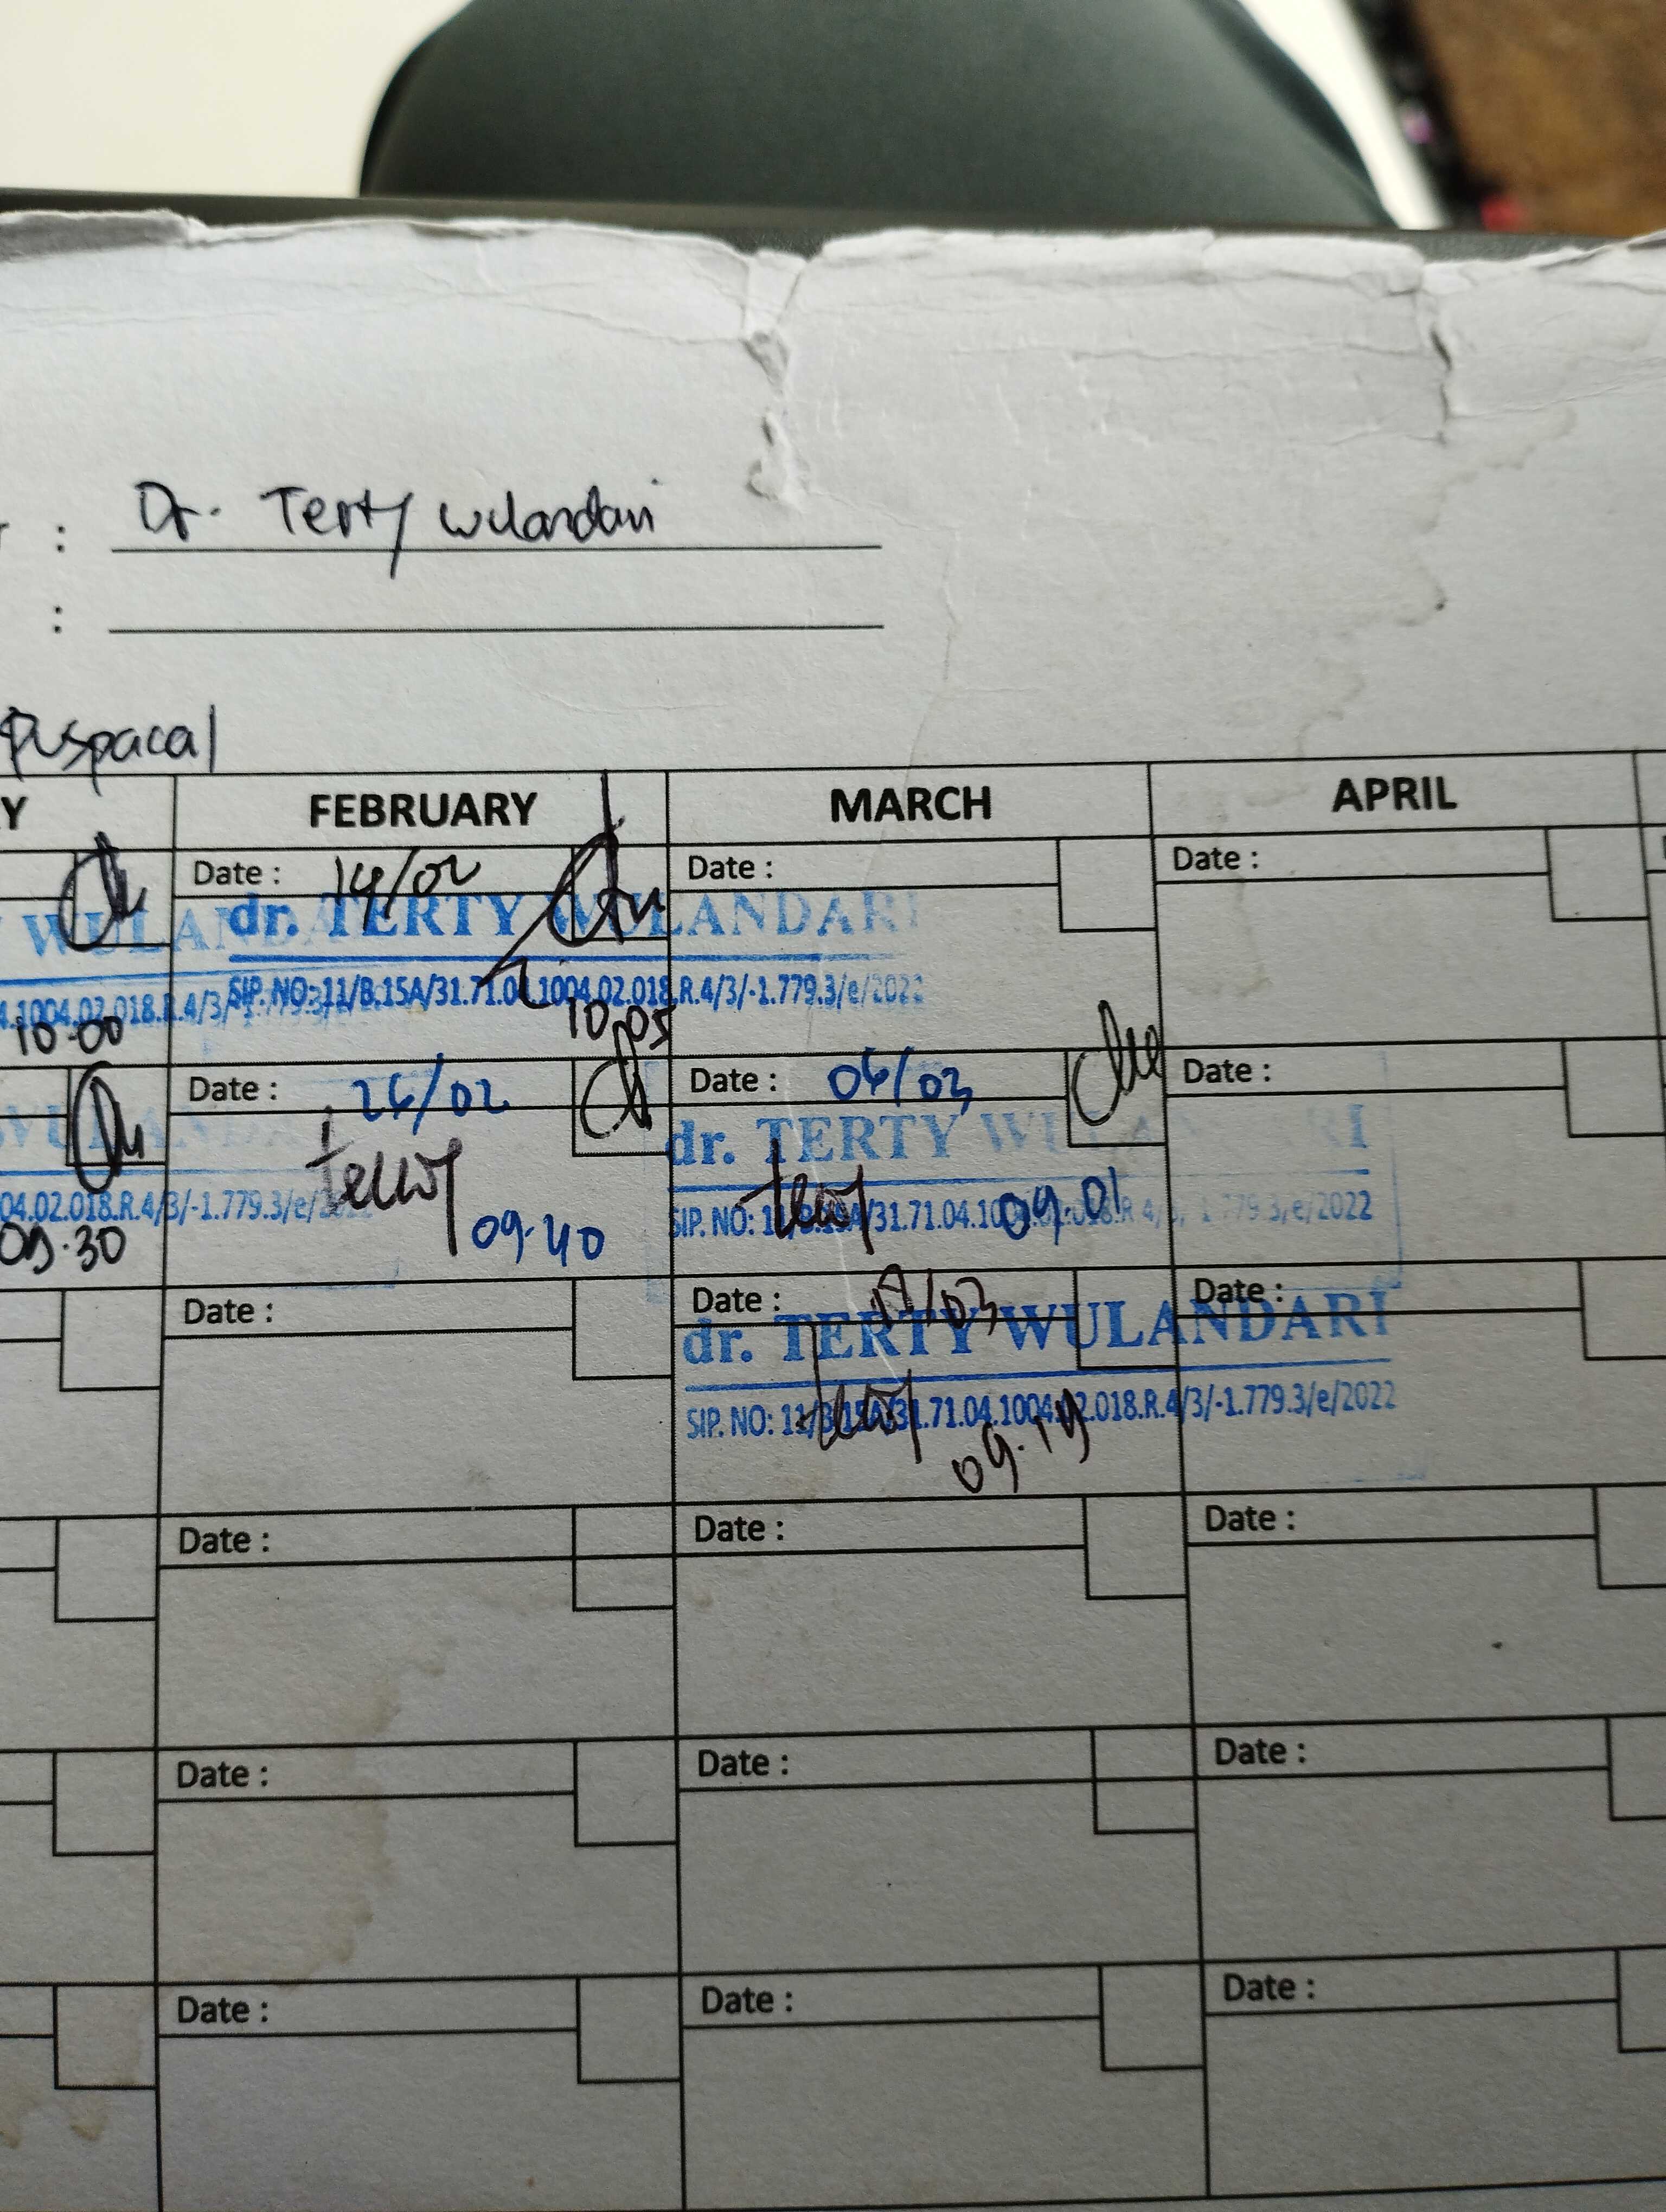 : Dr. Terty Wulandari
:
Puspacal
Y FEBRUARY MARCH APRIL
Date : 14/02 Date : Date :
WULANDA dr. TERTY WULANDARI
4.1004.02.018.R.4/3/-1.779.3/ SIP. NO: 11/B.15A/31.71.04.1004.02.018.R.4/3/-1.779.3/e/2022
10.00 10.05
Date : 26/02 Date : 04/03 Date :
WULANDA dr. TERTY WULANDARI
04.02.018.R.4/3/-1.779.3/e/2022 SIP. NO: 11/B.15A/31.71.04.1004.02.018.R.4/3/-1.779.3/e/2022
09.30 09.40 09.01
Date : Date : 17/03 Date :
dr. TERTY WULANDARI
SIP. NO: 11/B.15A/31.71.04.1004.02.018.R.4/3/-1.779.3/e/2022
09.19
Date : Date : Date :
Date : Date : Date :
Date : Date : Date :